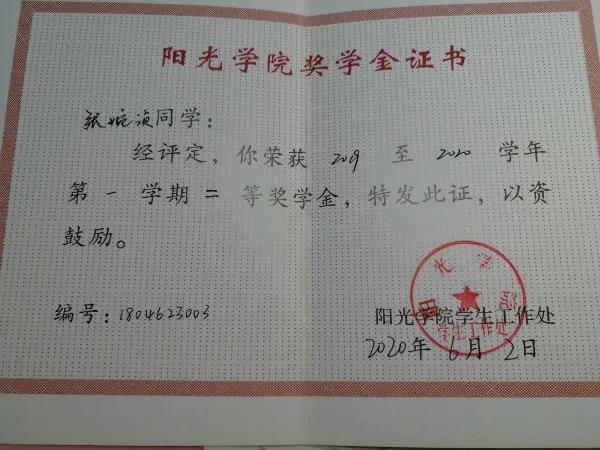 阳光学院奖学金证书
张婉滢同学：
经评定，你荣获 2019 至 2020 学年
第 一 学期 二 等奖学金，特发此证，以资
鼓励。
编号：1804623003
阳光学院学生工作处
2020年 6月 2日
阳光学院
学生工作处